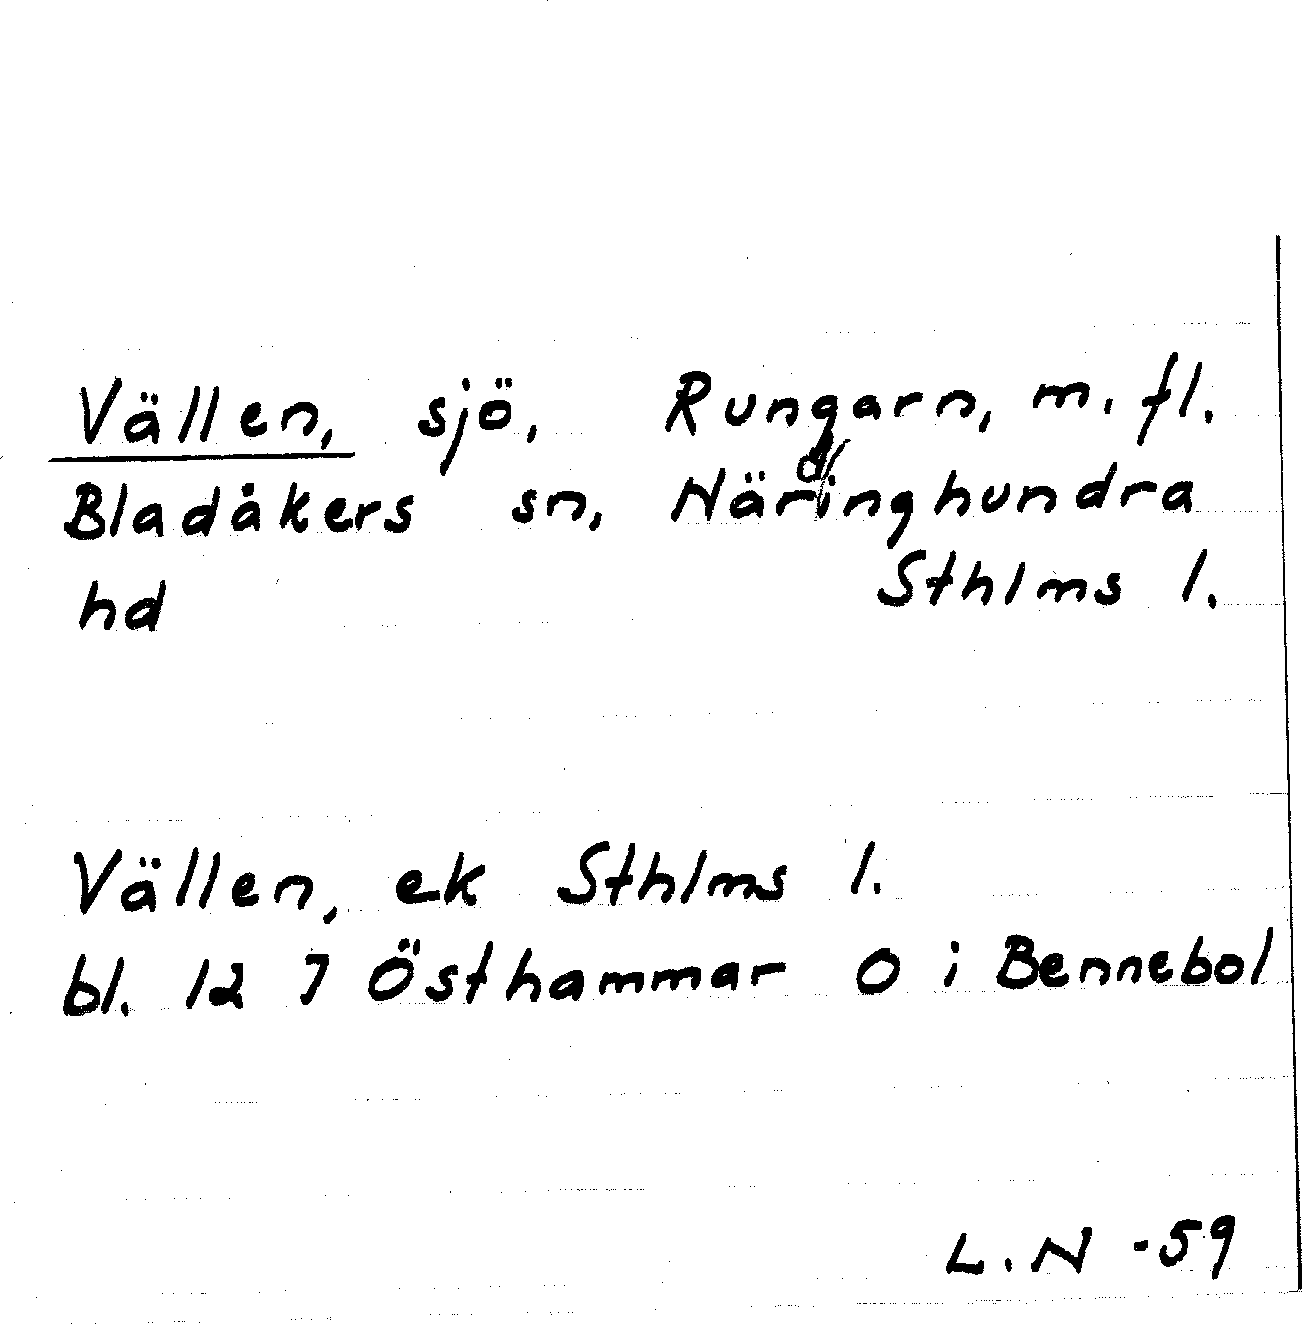 Vällen, sjö, Rungarn, m. fl.
Bladåkers sn, Närdinghundra
hd Sthlms l.
Vällen, ek Sthlms l.
bl. 12 J Östhammar O i Bennebol
L.N -59